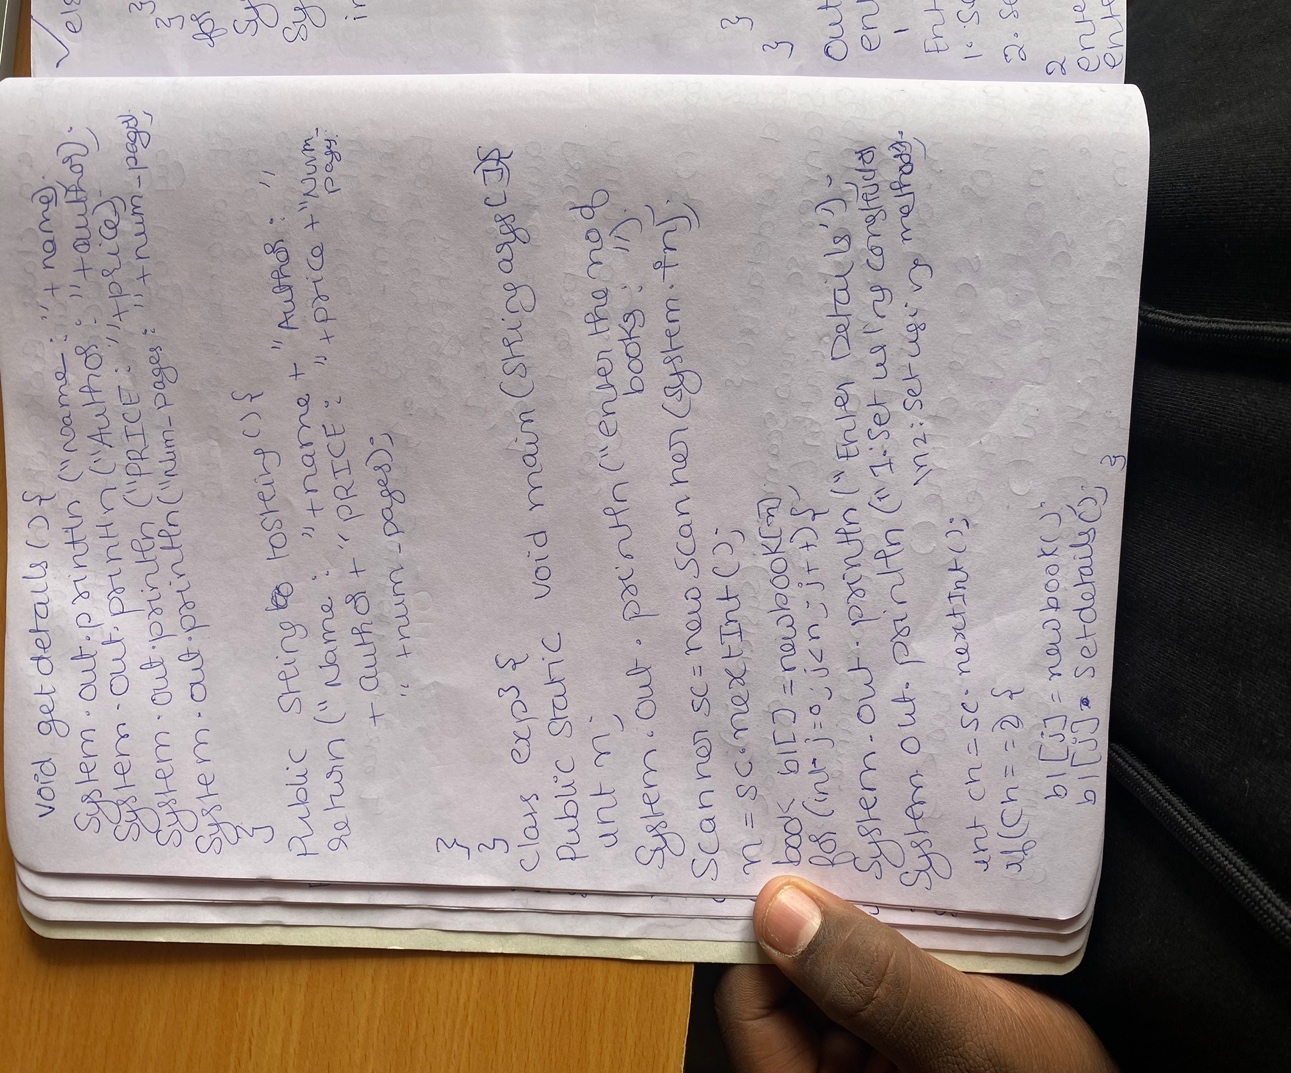 void getdetails(){
System.out.println("Name: "+name);
System.out.println("Author: "+author);
System.out.println("PRICE: "+price);
System.out.println("Num-pages: "+num-pages);
}
Public String toString(){
return("Name: "+name+ "Author: "
+author+"PRICE: "+price+"Num-
pages:
"+num-pages);
}
}
class exp3{
Public static void main(String args[]){
int n;
System.out.println("enter the no of
books: ");
Scanner sc=new Scanner(System.in);
n=sc.nextInt();
book b1[]=new book[n];
for(int j=0;j<n;j++){
System.out.println("Enter Details");
System.out.println("1.Set using constructor
\n2:set using methods.
int ch=sc.nextInt();
if(ch==2){
b1[j]=new book();
b1[j].setdetails(); }
}
}
for
Sy
Sy
in
}
}
out
ent
1
Ent
1.Se
2.Se
2
ente
ente